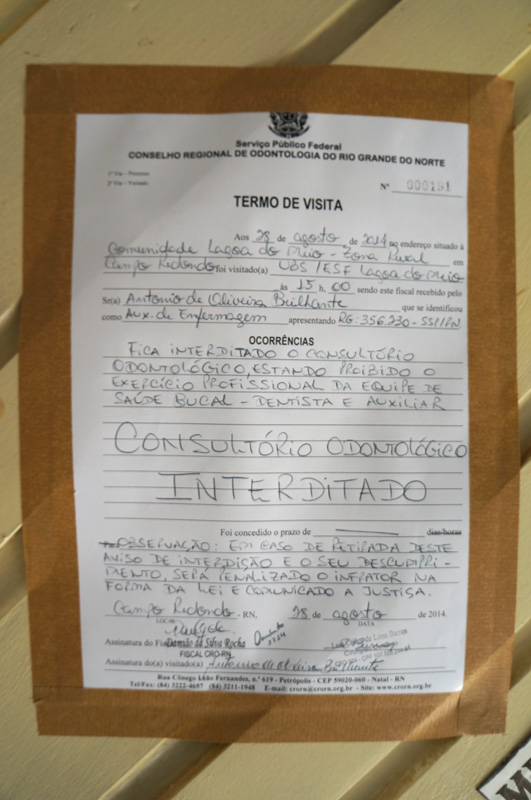 Serviço Público Federal
CONSELHO REGIONAL DE ODONTOLOGIA DO RIO GRANDE DO NORTE
1ª Via - Processo
2ª Via - Visitado
Nº 000191
TERMO DE VISITA
Aos 28 de agosto de 2014 no endereço situado à
Comunidade Lagoa do Meio - Zona Rural em
Campo Redondo foi visitado(a) UBS/ESF Lagoa do Meio
às 15 h, 00 sendo este fiscal recebido pelo
Sr(a) Antonio de Oliveira Brilhante que se identificou
como Aux. de Enfermagem apresentando RG: 356.230 - SSP/RN
OCORRÊNCIAS
FICA INTERDITADO O CONSULTÓRIO
ODONTOLÓGICO, ESTANDO PROIBIDO O
EXERCÍCIO PROFISSIONAL DA EQUIPE DE
SAÚDE BUCAL - DENTISTA E AUXILIAR
CONSULTÓRIO ODONTOLÓGICO
INTERDITADO
Foi concedido o prazo de dias/horas
OBSERVAÇÃO: EM CASO DE RETIRADA DESTE
AVISO DE INTERDIÇÃO E O SEU DESCUMPRI-
MENTO, SERÁ PENALIZADO O INFRATOR NA
FORMA DA LEI E COMUNICADO A JUSTIÇA.
Campo Redondo - RN, 28 de agosto de 2014.
LOCAL DATA
Assinatura do Fiscal Damião da Silva Rocha
FISCAL CRO-RN
Assinatura do(a) visitado(a) Antonio de Oliveira Brilhante
Rua Cônego Leão Fernandes, n.º 619 - Petrópolis - CEP 59020-060 - Natal - RN
Tel/Fax: (84) 3222-4687 (84) 3211-1948 E-mail: crorn@crorn.org.br - Site: www.crorn.org.br